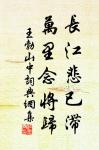 長江悲已滯
萬里念將歸
王勃山中詞與網集